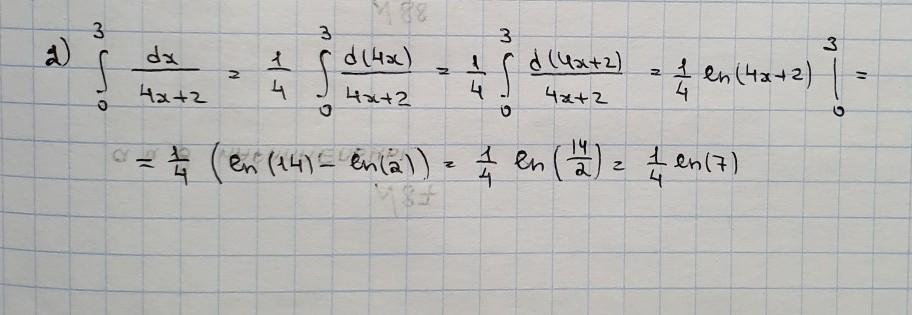 2) ∫₀³ dx/(4x+2) = 1/4 ∫₀³ d(4x)/(4x+2) = 1/4 ∫₀³ d(4x+2)/(4x+2) = 1/4 ln(4x+2) |₀³ =
= 1/4 (ln(14) - ln(2)) = 1/4 ln(14/2) = 1/4 ln(7)